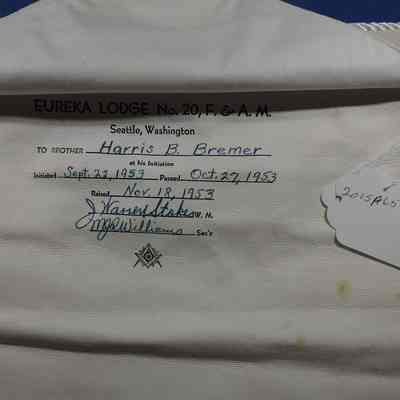 EUREKA LODGE No. 20, F. & A. M.
Seattle, Washington
TO BROTHER Harris B. Bremer
at his Initiation
Initiated Sept. 22, 1953 Passed Oct. 27, 1953
Raised Nov. 18, 1953
J. Warren Stokes W. M.
Williams Sec'y